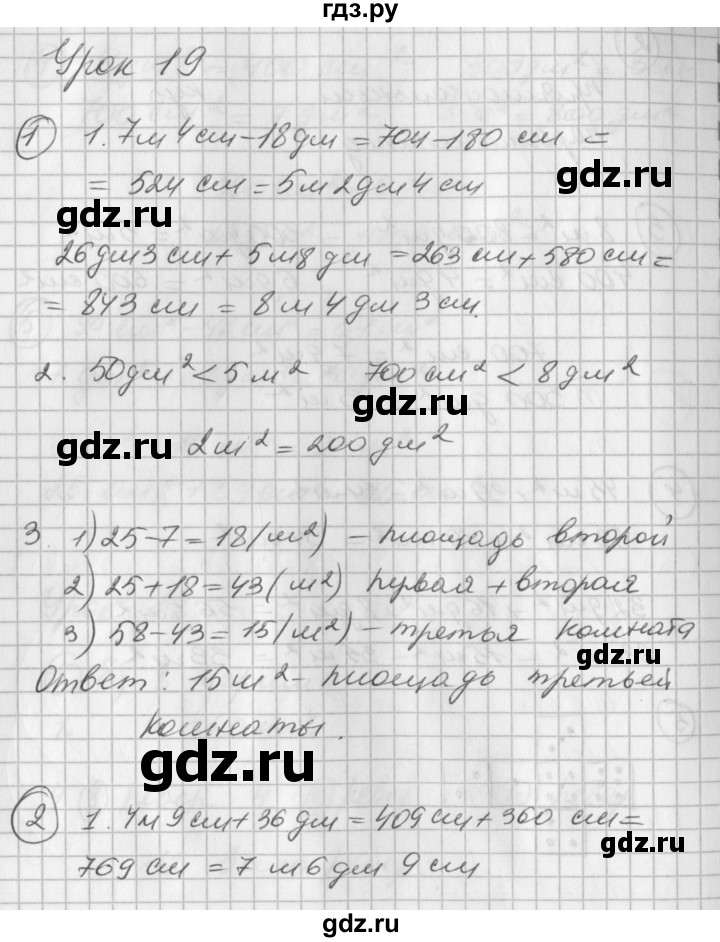 гдз.ру
Урок 19
① 1. 7м 4см – 18дм = 704 – 180 см =
= 524 см = 5м 2дм 4см
gdz.ru
gdz.ru
26дм 3см + 5м 8дм = 263 см + 580 см =
= 843 см = 8м 4 дм 3 см.
2. 50дм² < 5м² 700см² < 8дм²
gdz.ru
gdz.ru
2м² = 200дм²
3. 1) 25 – 7 = 18 (м²) – площадь второй
2) 25 + 18 = 43 (м²) первая + вторая
3) 58 – 43 = 15 (м²) – третья комната
gdz.ru
Ответ: 15м² – площадь третьей
комнаты.
gdz.ru
② 1. 4м 9см + 36дм = 409см + 360 см =
gdz.ru
769 см = 7 м 6 дм 9 см
gdz.ru